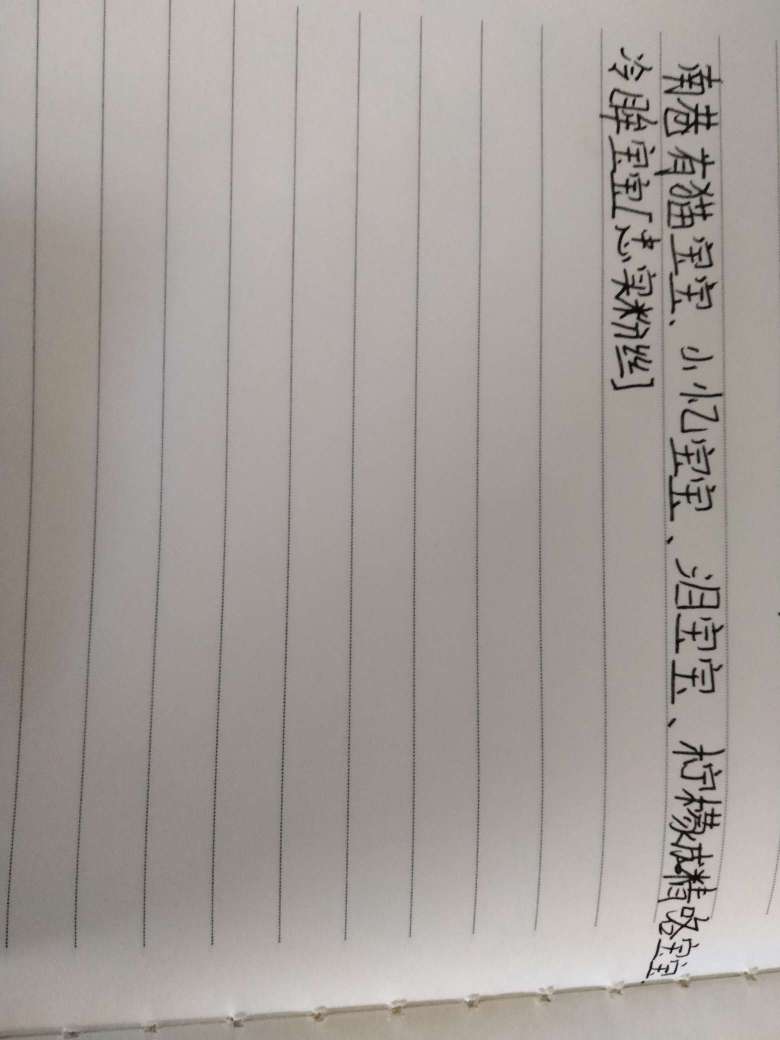 南巷有猫宝宝、小忆宝宝、泪宝宝、柠檬成精咯宝宝
冷眸宝宝[忠实粉丝]